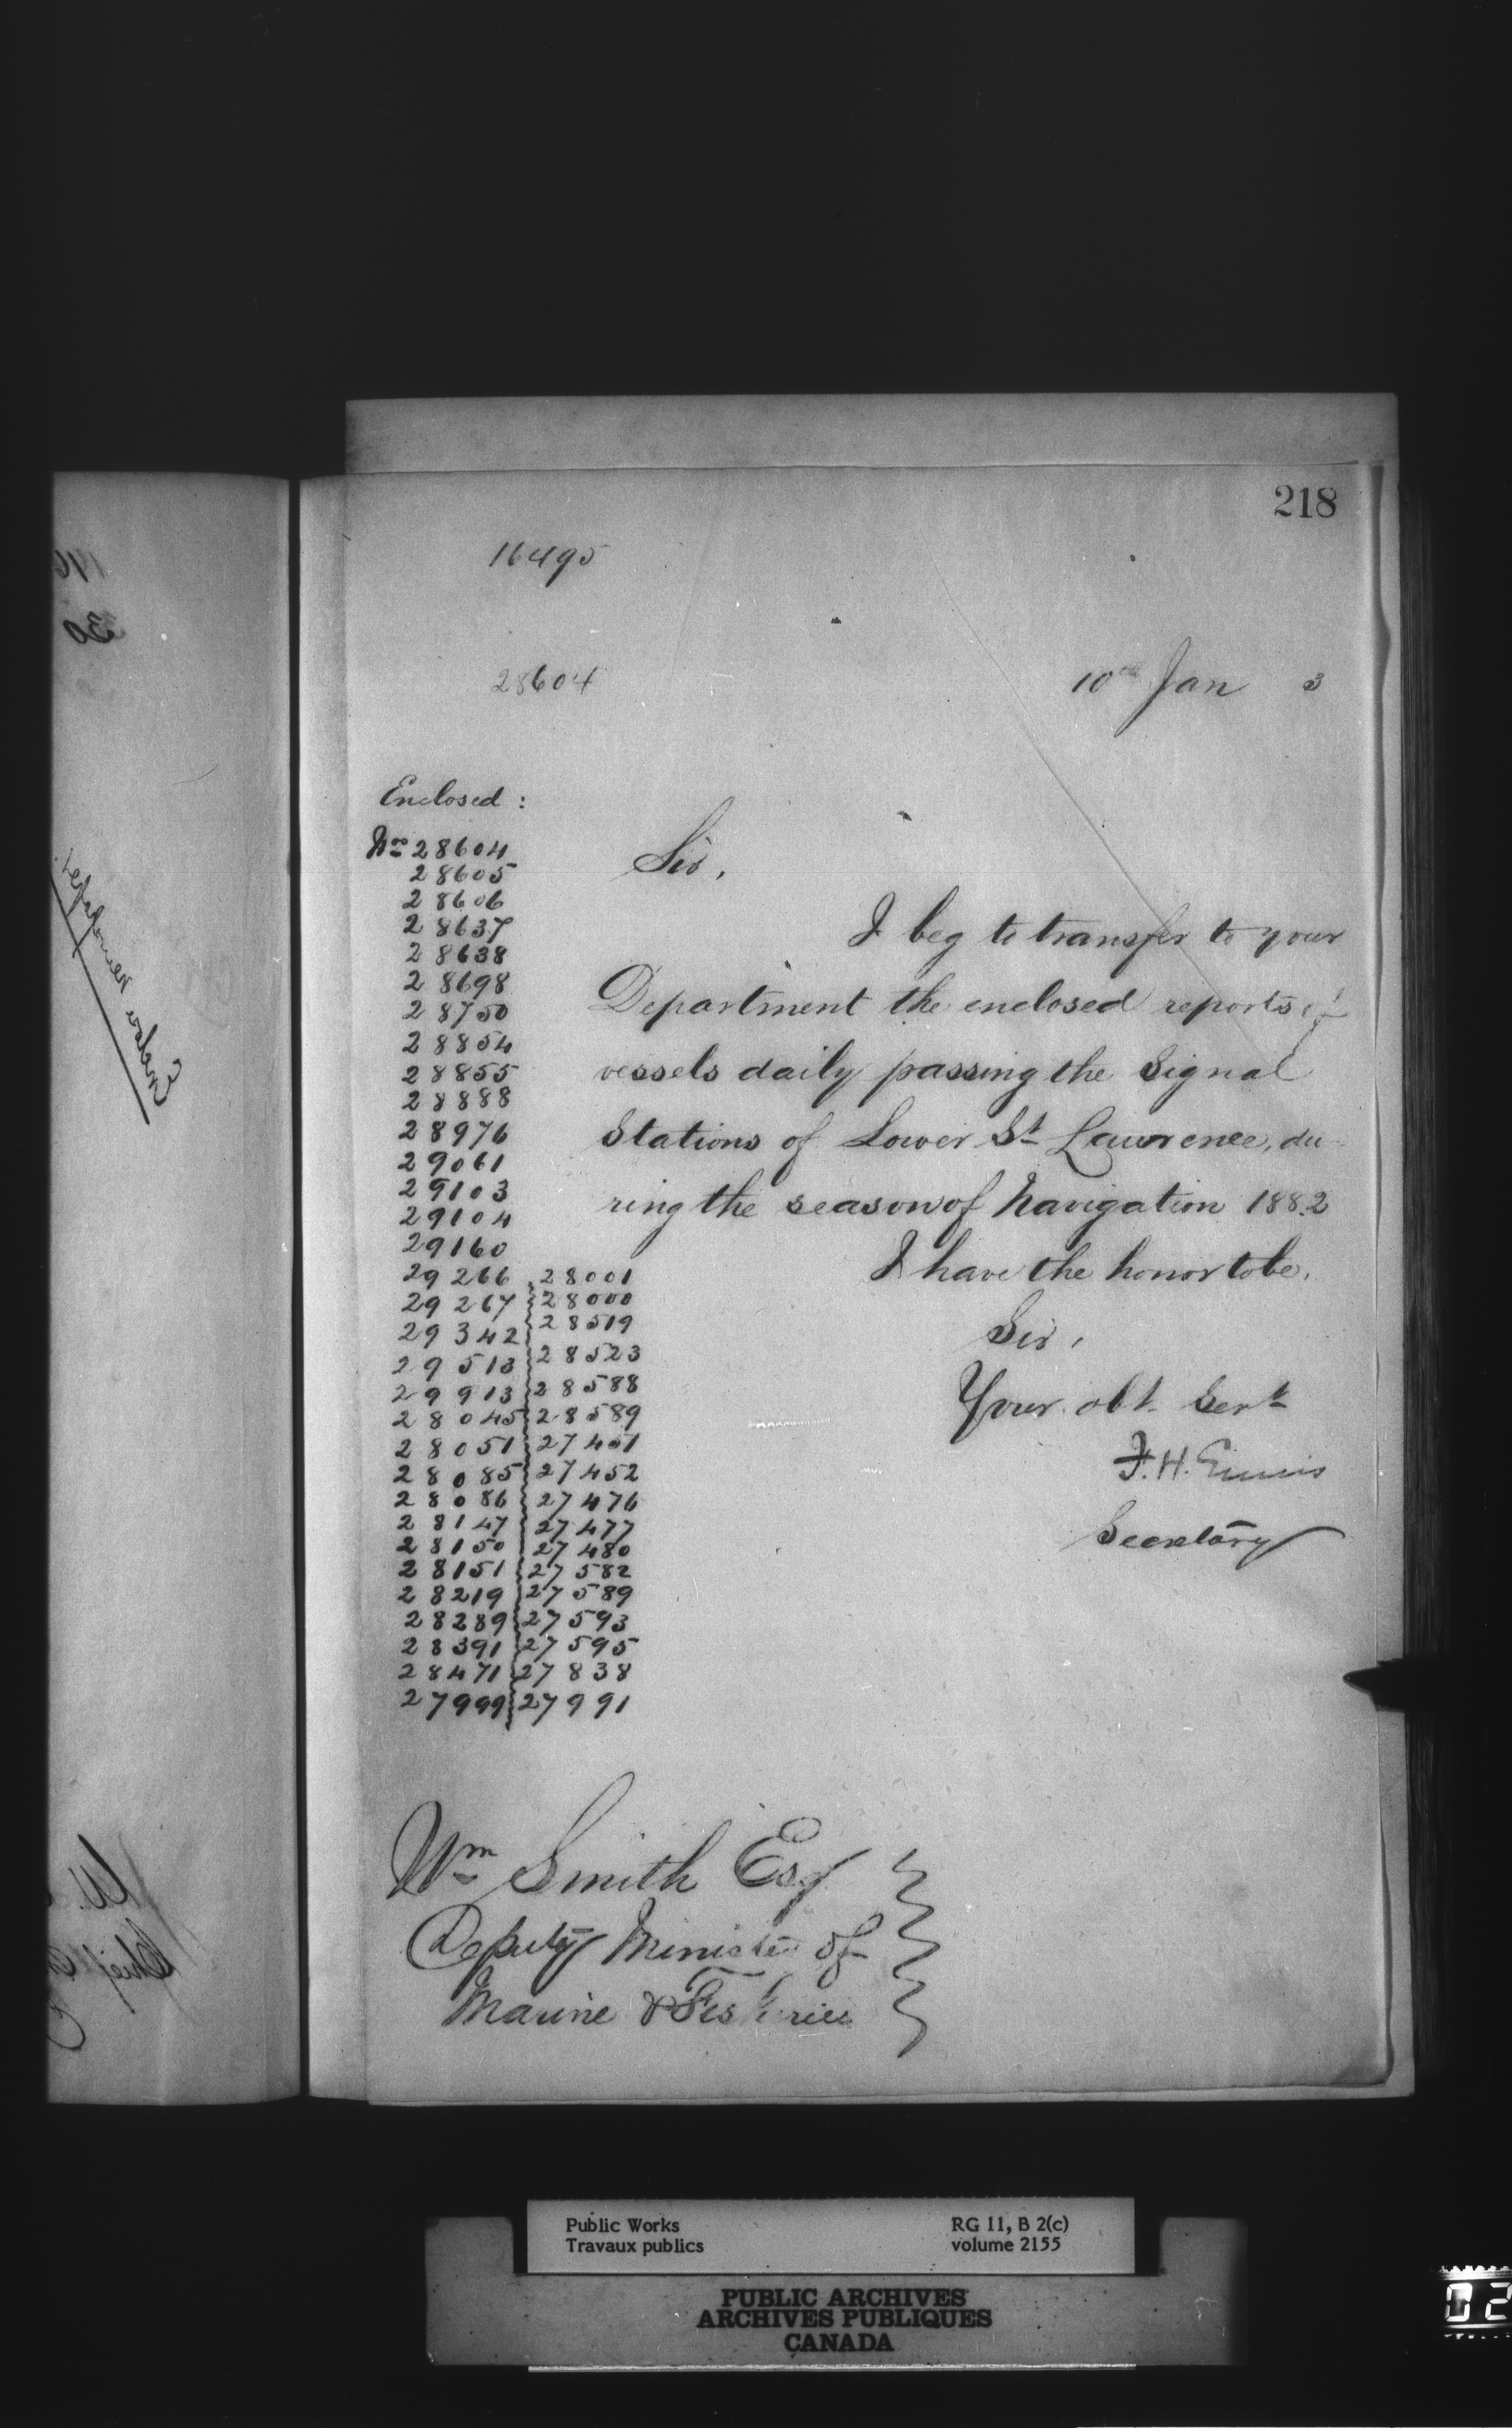 218
16495
28604
10th Jan 3
Enclosed :
Nos 28604
28605
28606
28637
28638
28698
28750
28854
28855
28888
28976
29061
29103
29104
29160
29266 28001
29267 28000
29342 28519
29513 28523
29913 28588
28045 28589
28051 27451
28085 27452
28086 27476
28147 27477
28150 27480
28151 27582
28219 27589
28289 27593
28391 27595
28471 27838
27999 27991
Sir,
I beg to transfer to your
Department the enclosed reports of
vessels daily passing the Signal
Stations of Lower St Lawrence, du-
ring the season of Navigation 1882
I have the honor to be,
Sir,
Your obt Servt
F. H. Ennis
Secretary
Wm Smith Esq
Deputy Minister of
Marine & Fisheries
Public Works
Travaux publics
RG 11, B 2(c)
volume 2155
PUBLIC ARCHIVES
ARCHIVES PUBLIQUES
CANADA
02